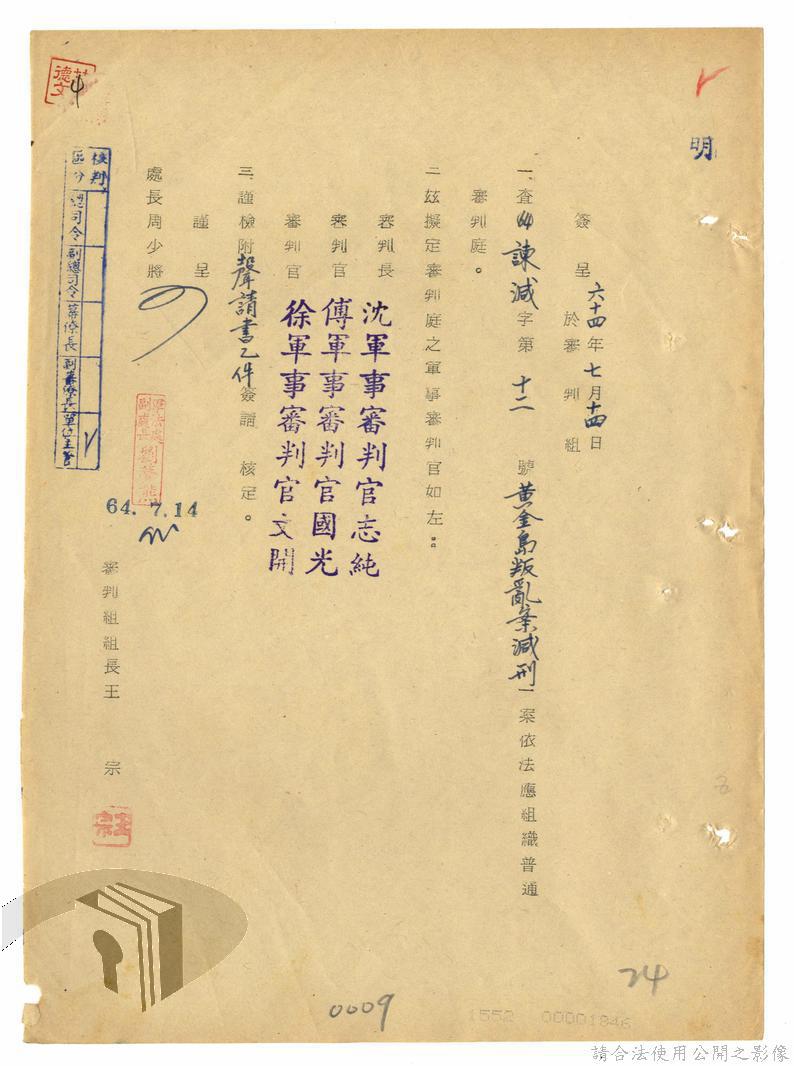 明
簽呈 六十四年七月十四日
於審判組
一、查64諫減字第十二號黃金島叛亂案減刑一案依法應組織普通
審判庭。
二茲擬定審判庭之軍事審判官如左：
審判長 沈軍事審判官志純
審判官 傅軍事審判官國光
審判官 徐軍事審判官文開
三、謹檢附聲請書乙件簽請 核定。
謹呈
處長周少將
64.7.14
審判組組長王 宗
核判區分
總司令
副總司令
幕僚長
副幕僚長
單位主管
24
0009
1552 00001846
請合法使用公開之影像